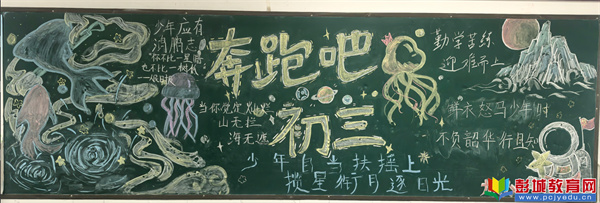 少年应有
鸿鹄志
奔跑吧
初三
当你觉得灿烂
山无拦
海无遮
少年自当扶摇上
揽星衔月逐日光
勤学苦练
迎难而上
鲜衣怒马少年时
不负韶华行且知
彭城教育网
www.pcjyedu.cn